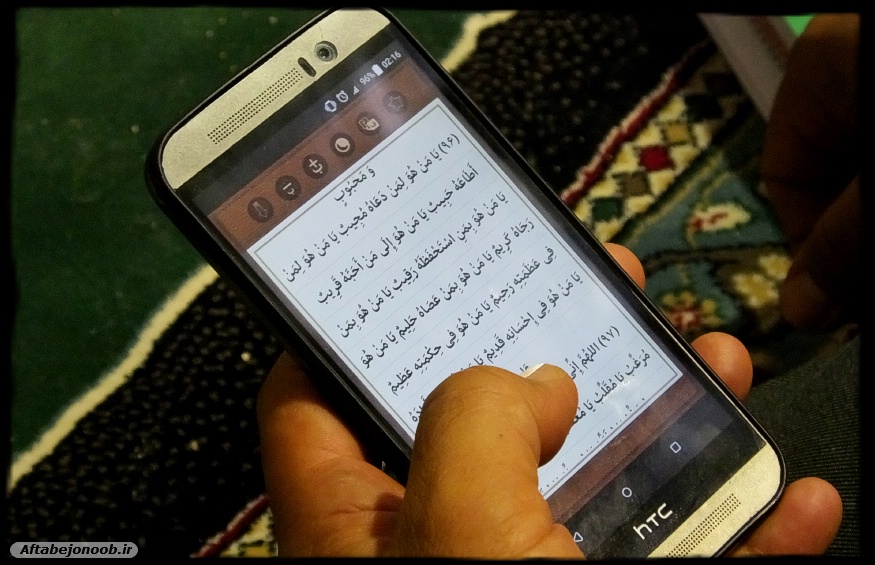 96% 02:16
وَ مَحْبُوبٍ
(۹۶) يَا مَنْ هُوَ لِمَنْ دَعَاهُ مُجِيبٌ يَا مَنْ هُوَ لِمَنْ
أَطَاعَهُ حَبِيبٌ يَا مَنْ هُوَ إِلَى مَنْ أَحَبَّهُ قَرِيبٌ
يَا مَنْ هُوَ بِمَنِ اسْتَحْفَظَهُ رَقِيبٌ يَا مَنْ هُوَ بِمَنْ
رَجَاهُ كَرِيمٌ يَا مَنْ هُوَ بِمَنْ عَصَاهُ حَلِيمٌ يَا مَنْ هُوَ
فِي عَظَمَتِهِ رَحِيمٌ يَا مَنْ هُوَ فِي حِكْمَتِهِ عَظِيمٌ
يَا مَنْ هُوَ فِي إِحْسَانِهِ قَدِيمٌ يَا
(۹۷) اللهُمَّ إِنِّي
مُرَغِّبُ يَا مُقَلِّبُ يَا
hTC
Aftabejonoob.ir